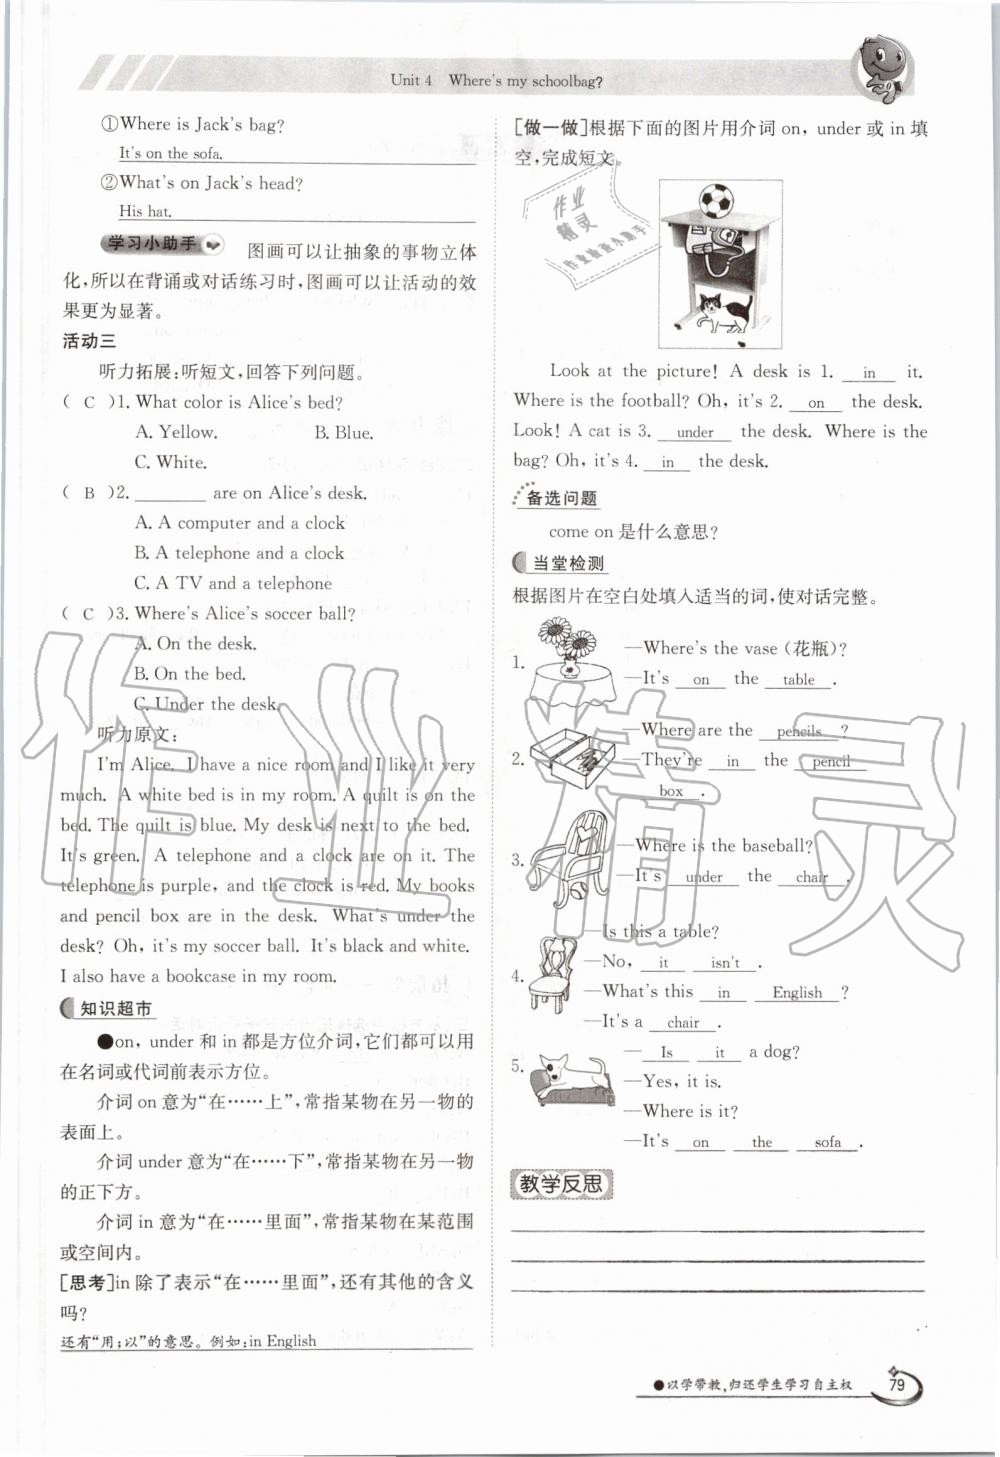 Unit 4 Where's my schoolbag?
①Where is Jack's bag?
It's on the sofa.
②What's on Jack's head?
His hat.
学习小助手 图画可以让抽象的事物立体
化,所以在背诵或对话练习时,图画可以让活动的效
果更为显著。
活动三
听力拓展:听短文,回答下列问题。
( C )1. What color is Alice's bed?
A. Yellow. B. Blue.
C. White.
( B )2. ________ are on Alice's desk.
A. A computer and a clock
B. A telephone and a clock
C. A TV and a telephone
( C )3. Where's Alice's soccer ball?
A. On the desk.
B. On the bed.
C. Under the desk.
听力原文:
I'm Alice. I have a nice room and I like it very
much. A white bed is in my room. A quilt is on the
bed. The quilt is blue. My desk is next to the bed.
It's green. A telephone and a clock are on it. The
telephone is purple, and the clock is red. My books
and pencil box are in the desk. What's under the
desk? Oh, it's my soccer ball. It's black and white.
I also have a bookcase in my room.
知识超市
●on, under 和 in 都是方位介词,它们都可以用
在名词或代词前表示方位。
介词 on 意为“在……上”,常指某物在另一物的
表面上。
介词 under 意为“在……下”,常指某物在另一物
的正下方。
介词 in 意为“在……里面”,常指某物在某范围
或空间内。
[思考]in 除了表示“在……里面”,还有其他的含义
吗?
还有“用;以”的意思。例如:in English
[做一做]根据下面的图片用介词 on, under 或 in 填
空,完成短文。
作业
精灵
作业检查小助手
Look at the picture! A desk is 1. in it.
Where is the football? Oh, it's 2. on the desk.
Look! A cat is 3. under the desk. Where is the
bag? Oh, it's 4. in the desk.
备选问题
come on 是什么意思?
当堂检测
根据图片在空白处填入适当的词,使对话完整。
1. —Where's the vase (花瓶)?
—It's on the table .
2. —Where are the pencils ?
—They're in the pencil
box .
3. —Where is the baseball?
—It's under the chair .
4. —Is this a table?
—No, it isn't .
—What's this in English ?
—It's a chair .
5. — Is it a dog?
—Yes, it is.
—Where is it?
—It's on the sofa .
教学反思
●以学带教,归还学生学习自主权 79
作业精灵